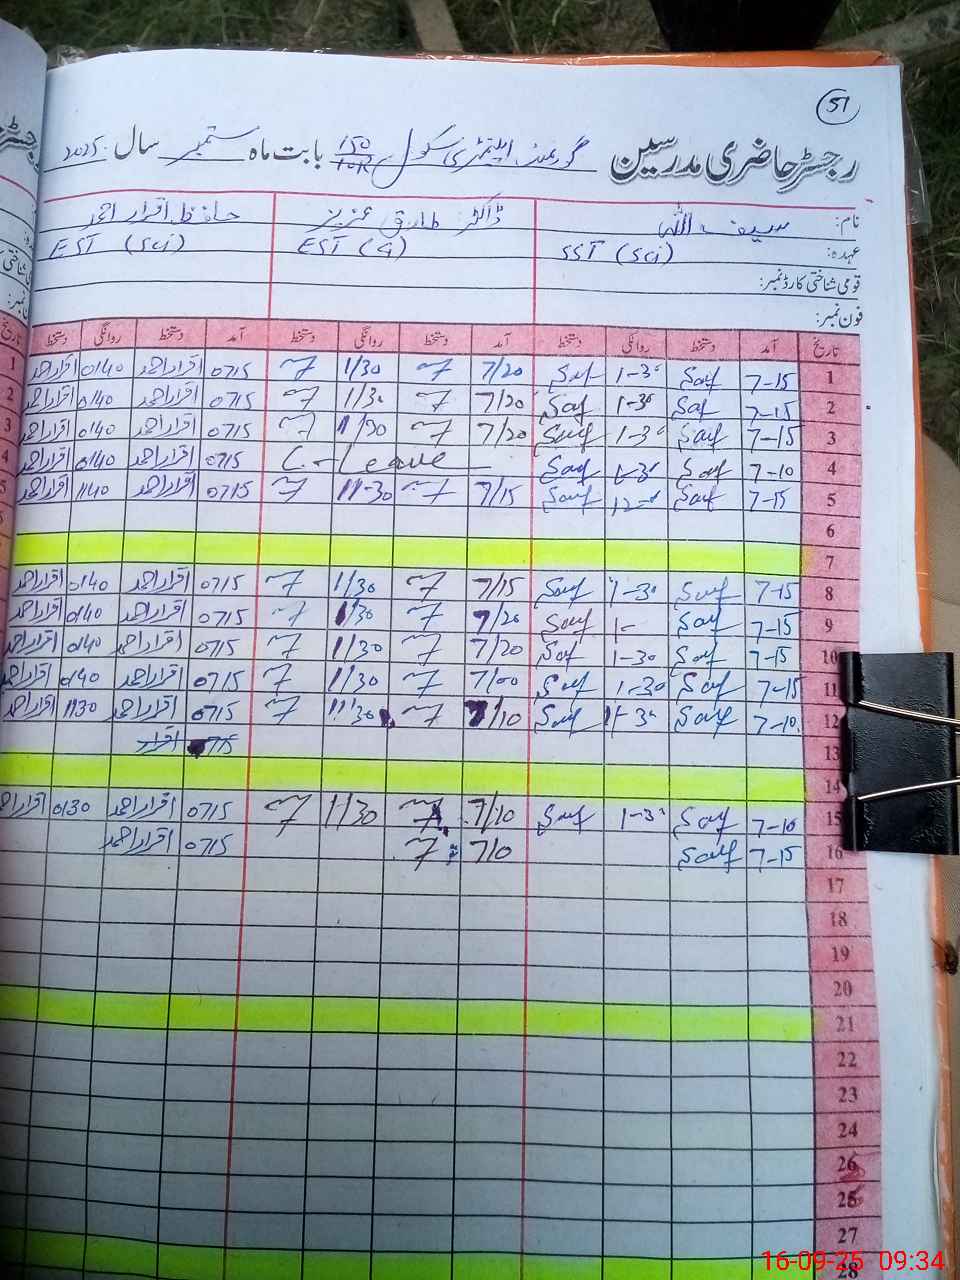 51
رجسٹر حاضری مدرسین گورنمنٹ ایلیمنٹری سکول 150/10R بابت ماہ ستمبر سال 2025
نام: سیف اللہ ڈاکٹر طارق عزیز حافظ اقرار احمد
عہدہ: SST (Sci) EST (G) EST (Sci)
قومی شناختی کارڈ نمبر:
فون نمبر:
تاریخ آمد دستخط روانگی دستخط آمد دستخط روانگی دستخط آمد دستخط روانگی دستخط
1 7-15 Saif 1-30 Saif 7/20 1/30 0715 اقرار احمد 0140 اقرار احمد
2 7-15 Saif 1-30 Saif 7/20 1/30 0715 اقرار احمد 0140 اقرار احمد
3 7-15 Saif 1-30 Saif 7/20 1/30 0715 اقرار احمد 0140 اقرار احمد
4 7-10 Saif 1-30 Saif C-Leave 0715 اقرار احمد 0140 اقرار احمد
5 7-15 Saif Saif 7/15 11-30 0715 اقرار احمد 1140 اقرار احمد
6
7
8 7-15 Saif 1-30 Saif 7/15 1/30 0715 اقرار احمد 0140 اقرار احمد
9 7-15 Saif 1- Saif 7/20 1/30 0715 اقرار احمد 0140 اقرار احمد
10 7-15 Saif 1-30 Saif 7/20 1/30 0715 اقرار احمد 0140 اقرار احمد
11 7-15 Saif 1-30 Saif 7/00 1/30 0715 اقرار احمد 0140 اقرار احمد
12 7-10 Saif 11-30 Saif 7/10 11/30 0715 اقرار احمد 1130 اقرار احمد
13 0715 اقرار
14
15 7-10 Saif 1-30 Saif 7/10 1/30 0715 اقرار احمد 0130 اقرار احمد
16 7-15 Saif 7/10 0715 اقرار احمد
17
18
19
20
21
22
23
24
26
25
27
28
16-09-25 09:34